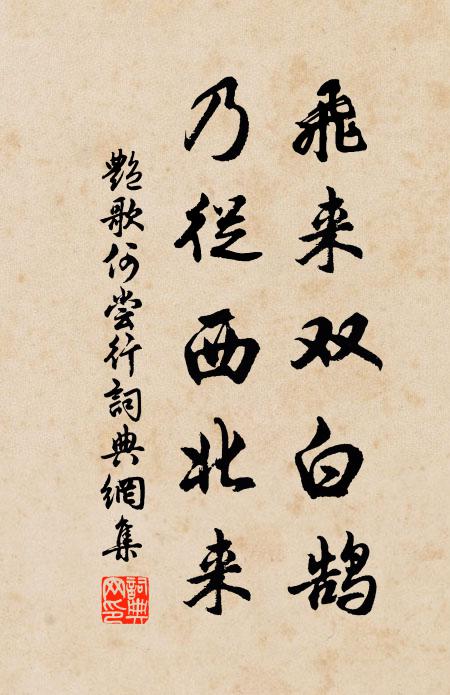 飛来双白鹄
乃從西北来
艶歌何嘗行詞典網集